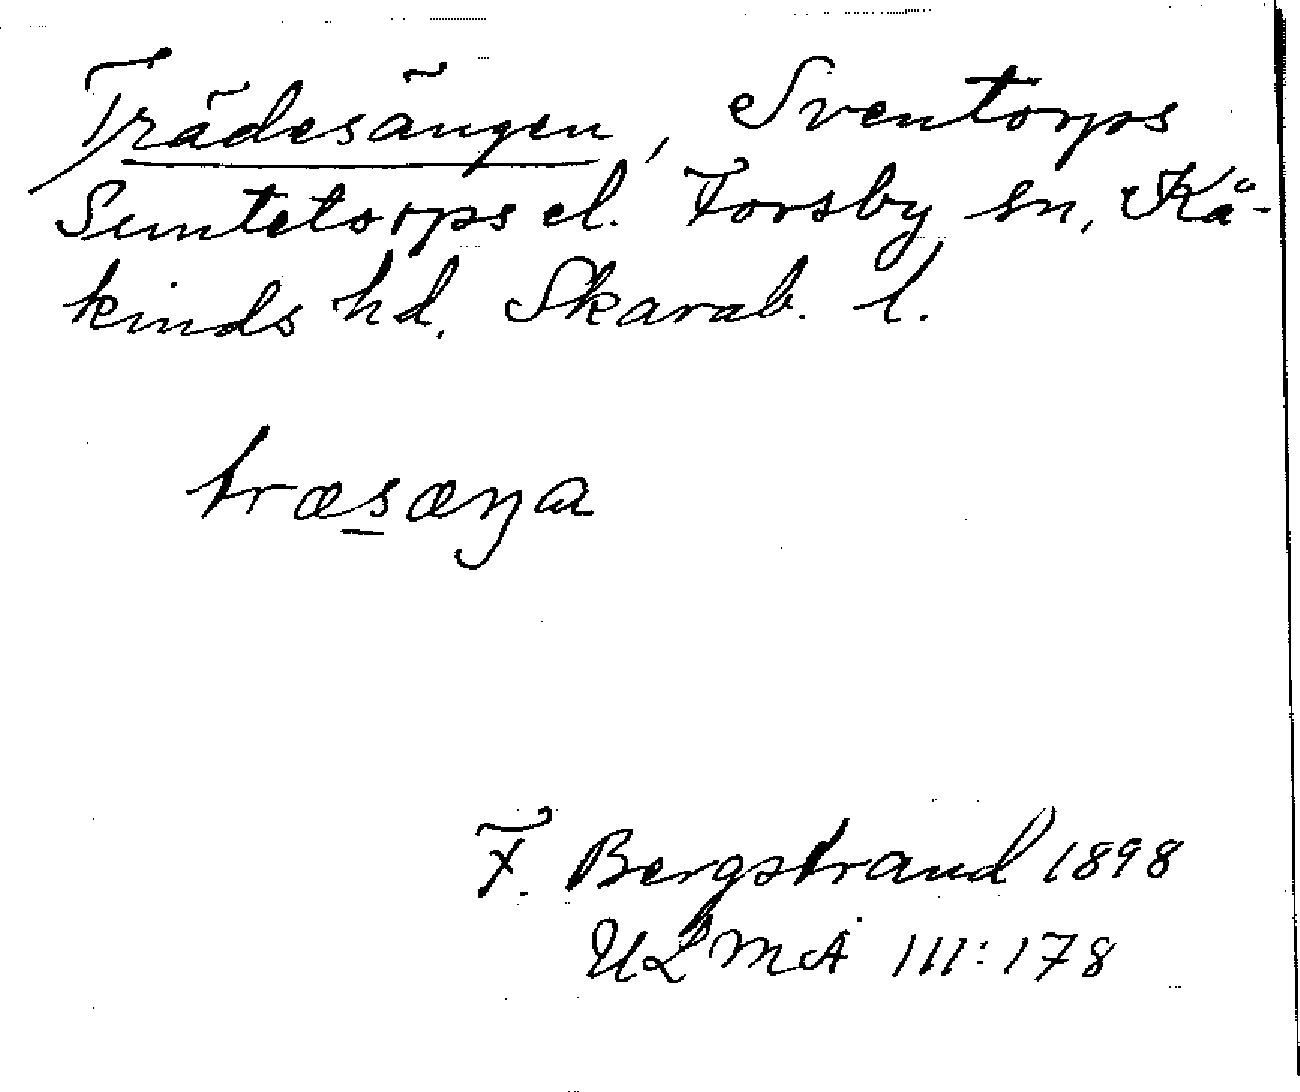 Trädesängen, Sventorps
Suntetorps el. Forsby sn, Kå-
kinds hd, Skarab. l.
træsæŋa
F. Bergstrand 1898
ULMA 111:178